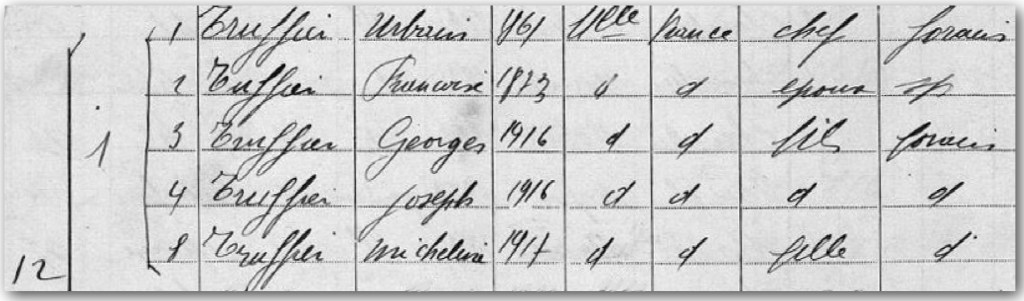 1 Truffier Urbain 1861 Ulle France chef forain
2 Truffier Francoise 1873 d d epouse sp
1 3 Truffier Georges 1916 d d fils forain
4 Truffier Joseph 1916 d d d d
12 Truffier Micheline 1917 d d fille d